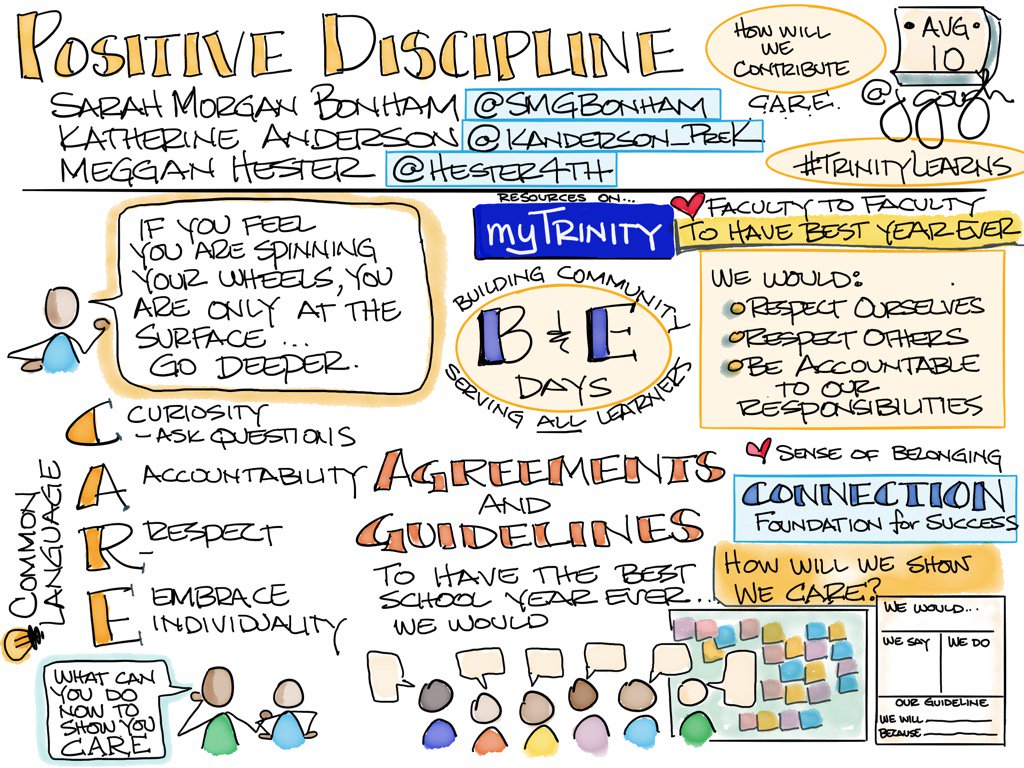 POSITIVE DISCIPLINE
SARAH MORGAN BONHAM @SMGBONHAM
KATHERINE ANDERSON @KANDERSON_PREK
MEGGAN HESTER @HESTER4TH
HOW WILL
WE
CONTRIBUTE
C.A.R.E.
AUG
10
@jgough
#TRINITYLEARNS
IF YOU FEEL
YOU ARE SPINNING
YOUR WHEELS, YOU
ARE ONLY AT THE
SURFACE ...
GO DEEPER.
RESOURCES ON...
myTRINITY
BUILDING COMMUNITY
B & E
DAYS
SERVING ALL LEARNERS
FACULTY TO FACULTY
TO HAVE BEST YEAR EVER
WE WOULD:
RESPECT OURSELVES
RESPECT OTHERS
BE ACCOUNTABLE
TO OUR
RESPONSIBILITIES
COMMON
LANGUAGE
C CURIOSITY
- ASK QUESTIONS
A ACCOUNTABILITY
R - RESPECT
E EMBRACE
INDIVIDUALITY
AGREEMENTS
AND
GUIDELINES
TO HAVE THE BEST
SCHOOL YEAR EVER...
WE WOULD
SENSE OF BELONGING
CONNECTION
FOUNDATION for SUCCESS
HOW WILL WE SHOW
WE CARE?
WE WOULD...
WE SAY
WE DO
OUR GUIDELINE
WE WILL
BECAUSE
WHAT CAN
YOU DO
NOW TO
SHOW YOU
CARE